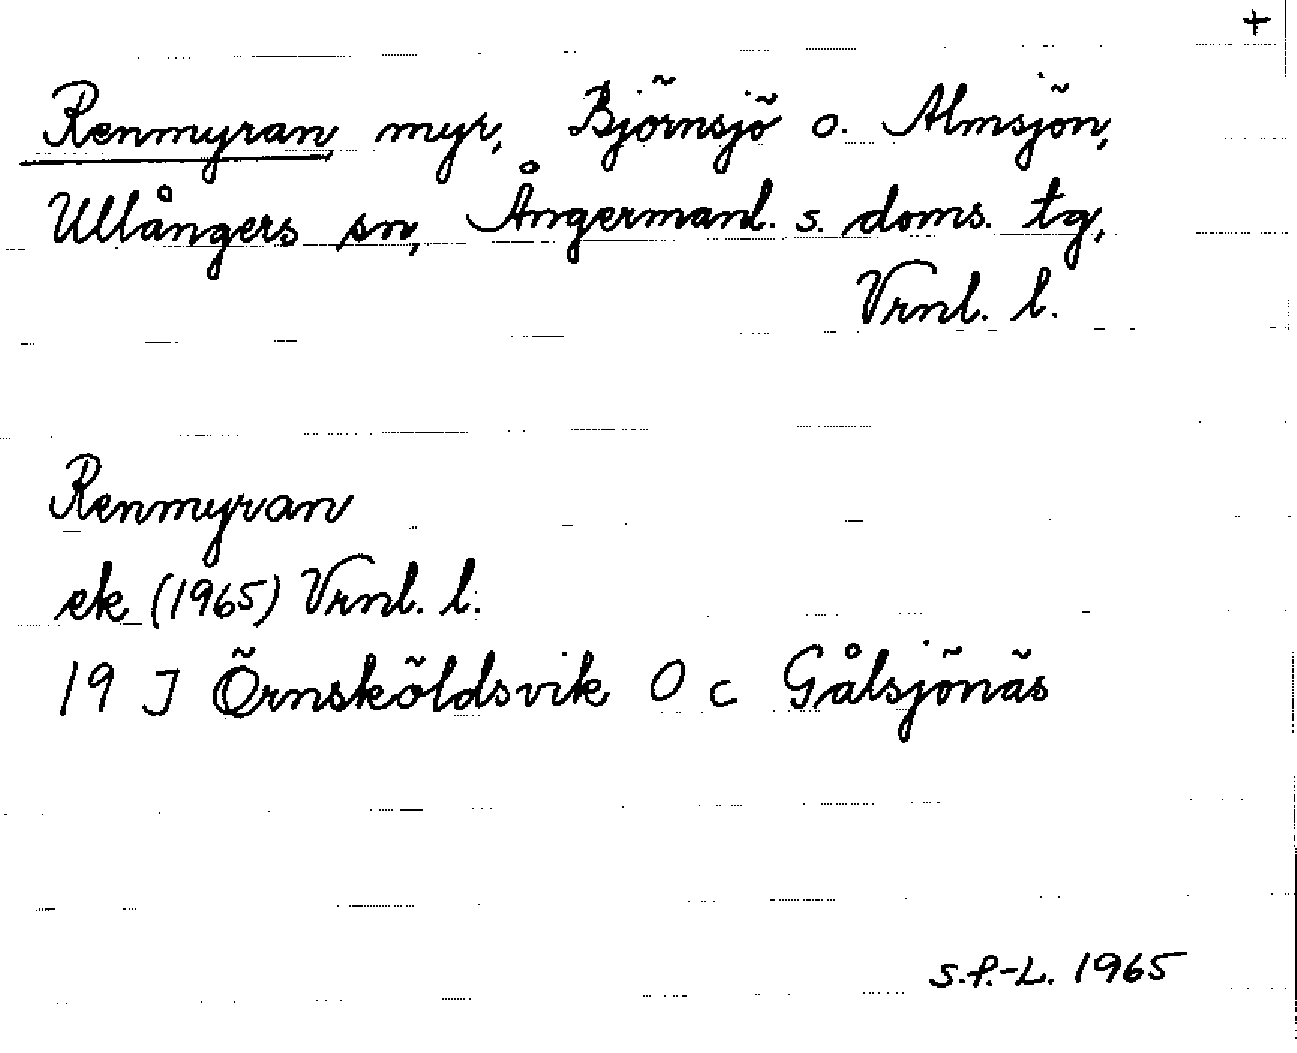 +
Renmyran myr, Björnsjö o. Almsjön,
Ullångers sn, Ångermanl. s. doms. tg,
Vrnl. l.
Renmyran
ek (1965) Vrnl. l.
19 J Örnsköldsvik O c Gålsjönäs
S.P.-L. 1965